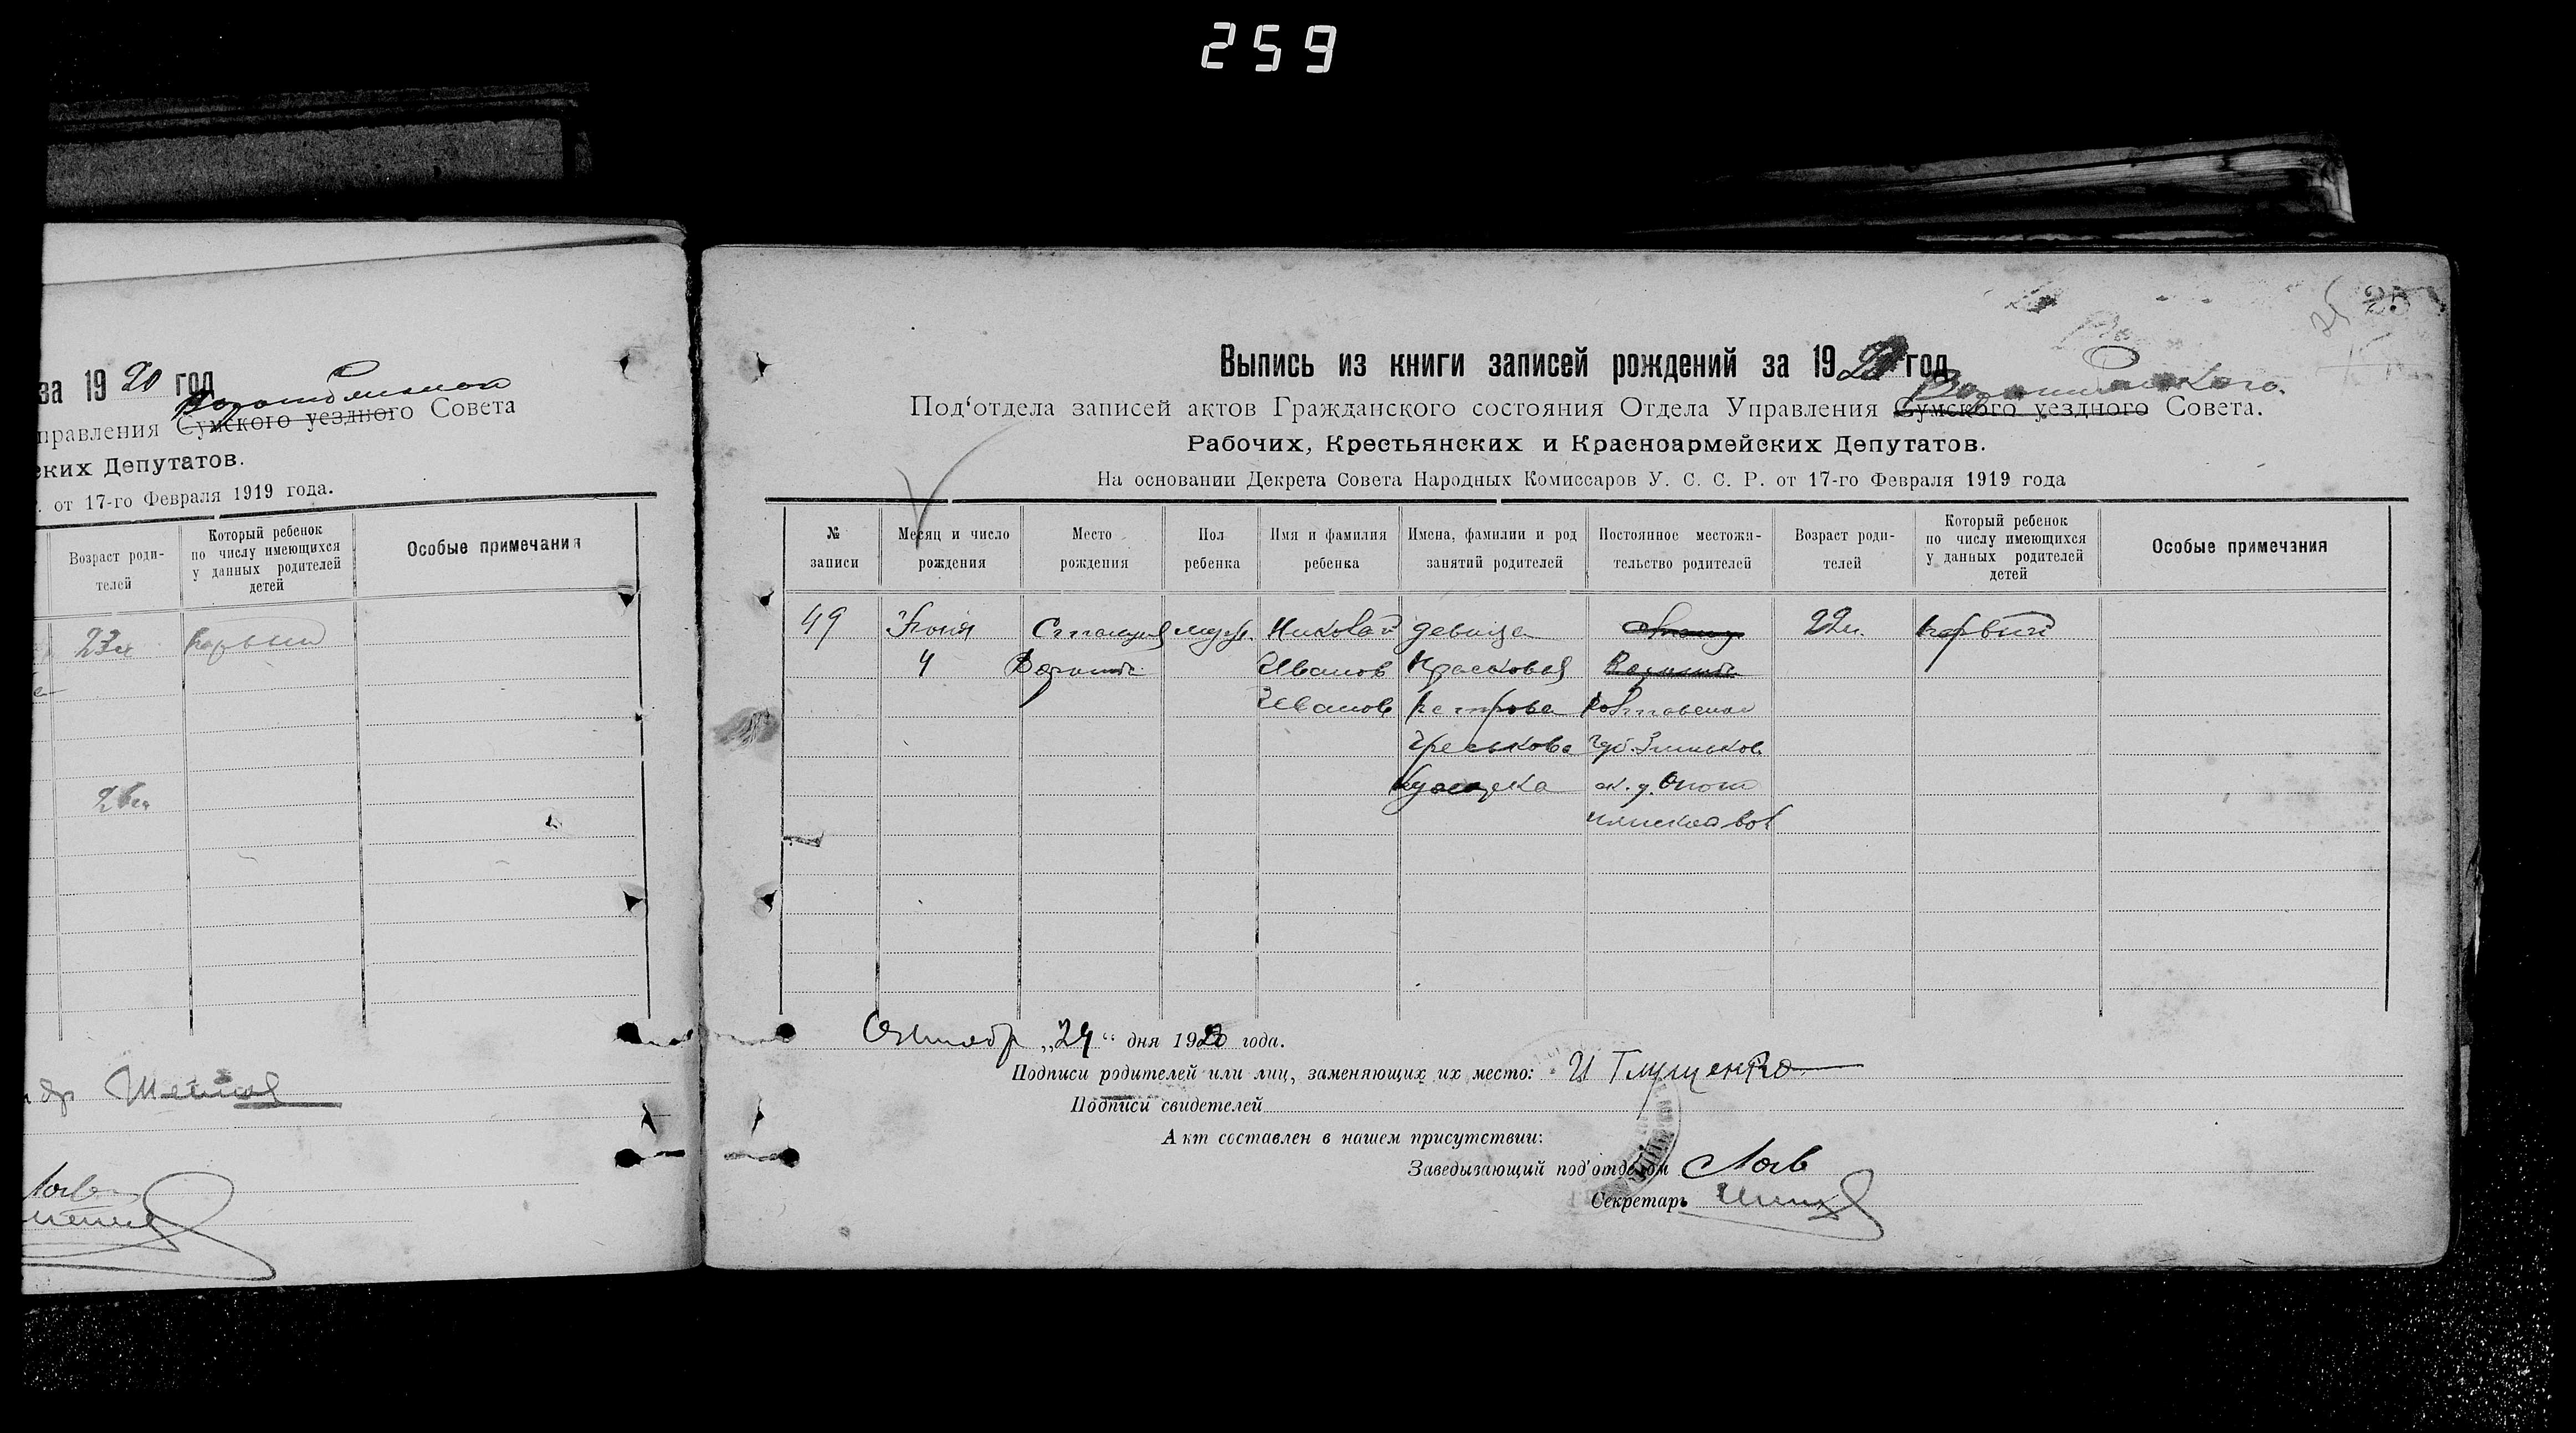 259
за 1920 год
правления Сумского уездного Совета
ских Депутатов.
. от 17-го Февраля 1919 года.
Возраст роди-
телей
Который ребенок
по числу имеющихся
у данных родителей
детей
Особые примечания
23 л. первый
26 л.
25
Выпись из книги записей рождений за 1920 год
Ворожбянского
Под'отдела записей актов Гражданского состояния Отдела Управления Сумского уездного Совета.
Рабочих, Крестьянских и Красноармейских Депутатов.
На основании Декрета Совета Народных Комиссаров У. С. С. Р. от 17-го Февраля 1919 года
№
записи
Месяц и число
рождения
Место
рождения
Пол
ребенка
Имя и фамилия
ребенка
Имена, фамилии и род
занятий родителей
Постоянное местожи-
тельство родителей
Возраст роди-
телей
Который ребенок
по числу имеющихся
у данных родителей
детей
Особые примечания
49 Июня Станция мужс. Николай девица 22 л. первый
4 Ворожба Иванов Прасковья Ворожба
Иванов Петрова Полтавской
губ. Зиньков
ск. у. Опош
нянской вол
Октябр „24“ дня 1920 года.
Подписи родителей или лиц, заменяющих их место: И Глущенко
Подписи свидетелей
Акт составлен в нашем присутствии:
Заведывающий под'отделом
Секретарь